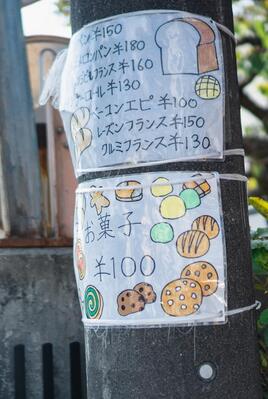 パン ¥150
メロンパン ¥180
フランス ¥160
ロール ¥130
ベーコンエピ ¥100
レーズンフランス ¥150
クルミフランス ¥130
お菓子
¥100